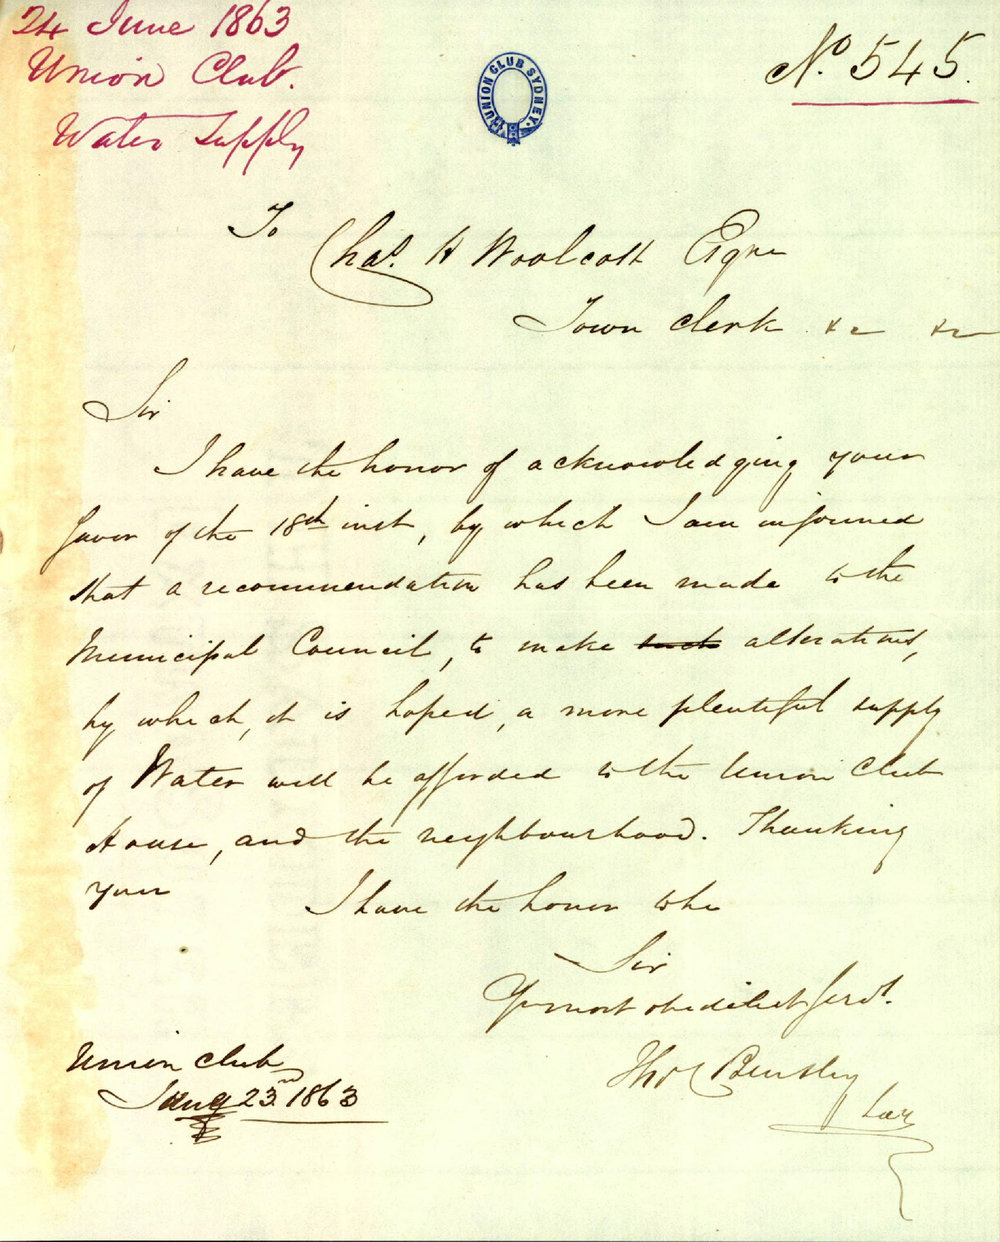 24 June 1863
Union Club.
Water Supply
No. 545.
UNION CLUB SYDNEY.
To
Chas. H Woolcott Esqre
Town Clerk &c &c
Sir
I have the honor of acknowledging your
favor of the 18th inst, by which I am informed
that a recommendation has been made to the
Municipal Council, to make such alterations,
by which, it is hoped, a more plentiful supply
of Water will be afforded to the Union Club
House, and the neighbourhood. Thanking
you
I have the honor to be
Sir
Yr most obedient Servt.
Thos
Union Club
23 1863